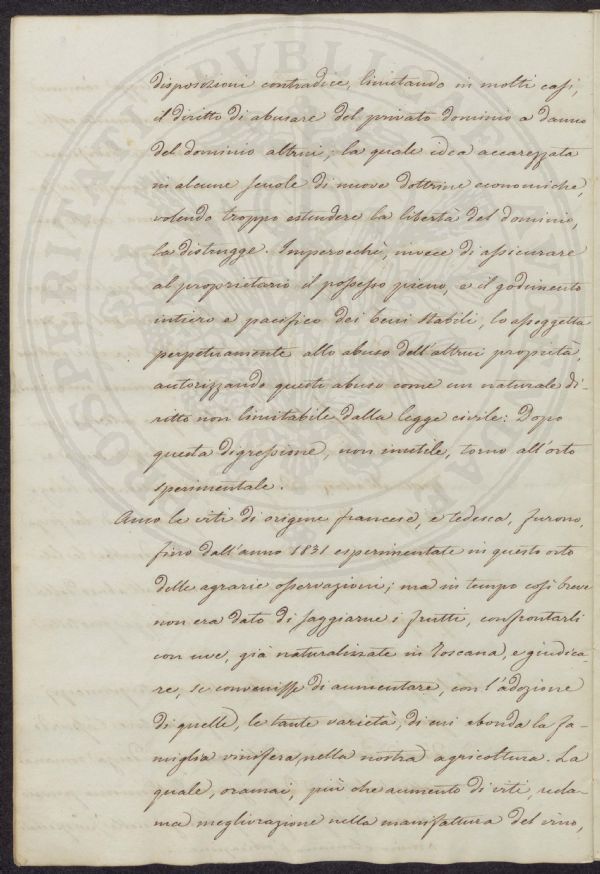 disposizioni contradice, limitando in molti casi,
il diritto di abusare del privato dominio a danno
del dominio altrui; la quale idea accarezzata
in alcune scuole di nuove dottrine economiche,
volendo troppo estendere la libertà del dominio,
la distrugge. Imperocchè, invece di assicurare
al proprietario il possesso pieno, e il godimento
intiero e pacifico dei beni stabili, lo assoggetta
perpetuamente allo abuso dell'altrui proprietà,
autorizzando questo abuso come un naturale di-
ritto non limitabile dalla legge civile: Dopo
questa digressione, non inutile, torno all'orto
sperimentale.
Anco le viti di origine francese, e tedesca, furono,
fino dall'anno 1831 esperimentate in questo orto
delle agrarie osservazioni; ma in tempo così breve
non era dato di saggiarne i frutti, confrontarli
con uve, già naturalizzate in Toscana, e giudica-
re, se convenisse di aumentare, con l'adozione
di quelle, le tante varietà, di cui abonda la fa-
miglia vinifera, nella nostra agricoltura. La
quale, oramai, più che aumento di viti, recla-
ma megliorazione nella manifattura del vino,
PROSPERITATI PUBLICAE AU DAE